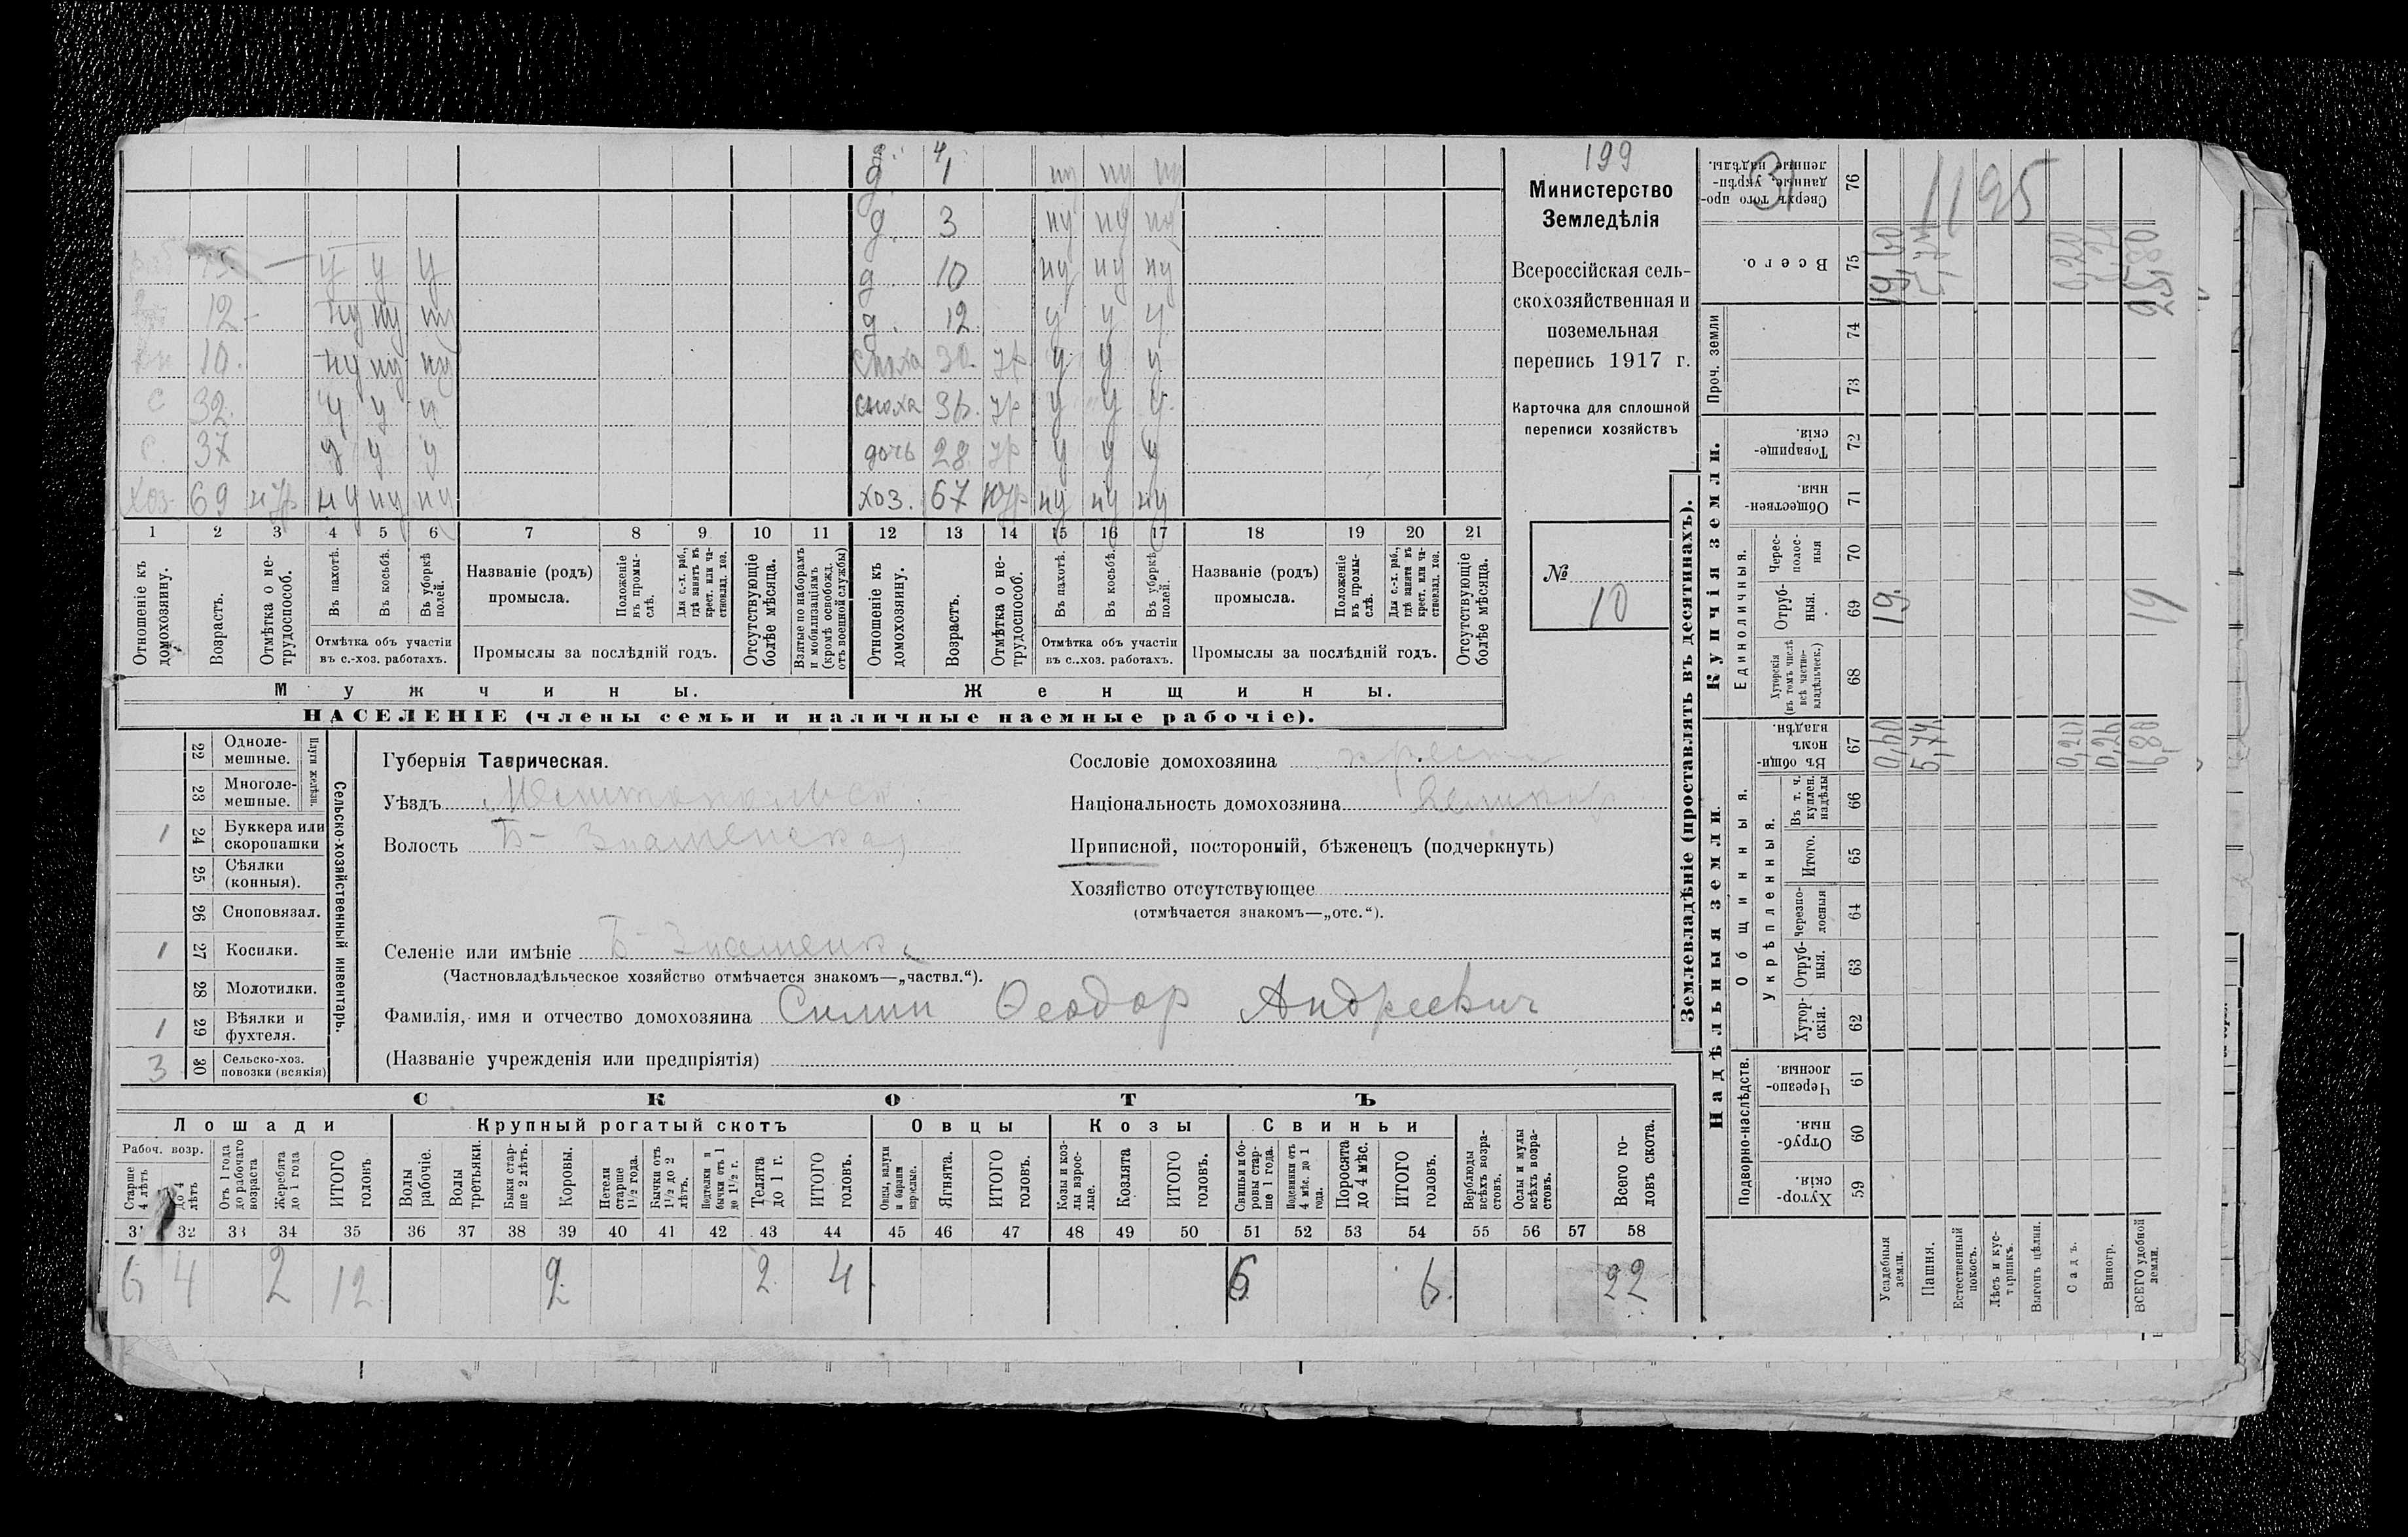 д. 4
д 1 ну ну ну
д. 3 ну ну ну
д. 10 ну ну ну
12 ну ну ну д. 12 у у у
10. ну ну ну сноха 30. ур у у у
с 32. у у у сноха 36. ур у у у.
с. 37 у у у дочь 28 ур у у у
хоз 69 ну ну ну хоз. 67 ну ну ну
1 2 3 4 5 6 7 8 9 10 11 12 13 14 15 16 17 18 19 20 21
Отношеніе къ домохозяину.
Возрастъ.
Отмѣтка о не-
трудоспособ.
Въ пахотѣ.
Въ косьбѣ.
Въ уборкѣ
полей.
Отмѣтка объ участіи
въ с.-хоз. работахъ.
Названіе (родъ)
промысла.
Положеніе
въ промы-
слѣ.
Для с.-х. раб.,
гдѣ занятъ въ
крест. или ча-
стновлад. хоз.
Промыслы за послѣдній годъ.
Отсутствующіе
болѣе мѣсяца.
Взятые по наборамъ
и мобилизаціямъ
(кромѣ освобожд.
отъ военной службы)
Отношеніе къ
домохозяину.
Возрастъ.
Отмѣтка о не-
трудоспособ.
Въ пахотѣ.
Въ косьбѣ.
Въ уборкѣ
полей.
Отмѣтка объ участіи
въ с..хоз. работахъ.
Названіе (родъ)
промысла.
Положеніе
въ промы-
слѣ.
Для с.-х. раб.,
гдѣ занята въ
крест. или ча-
стновлад. хоз.
Промыслы за послѣдній годъ.
Отсутствующіе
болѣе мѣсяца.
Мужчины. Женщины.
НАСЕЛЕНІЕ (члены семьи и наличные наемные рабочіе).
199
Министерство
Земледѣлія
Всероссійская сель-
скохозяйственная и
поземельная
перепись 1917 г.
Карточка для сплошной
переписи хозяйствъ
№
10
22 Одноле-
мешные.
23 Многоле-
мешные.
Плуги желѣзн.
1 24 Буккера или
скоропашки
25 Сѣялки
(конныя).
26 Сноповязал.
1 27 Косилки.
28 Молотилки.
1 29 Вѣялки и
фухтеля.
3 30 Сельско-хоз.
повозки (всякія)
Сельско-хозяйственный инвентарь.
Губернія Таврическая.
Уѣздъ
Волость Б-Знаменская
Селеніе или имѣніе Б-Знаменка
(Частновладѣльческое хозяйство отмѣчается знакомъ—„частвл.“).
Фамилія, имя и отчество домохозяина Силин Феодор Андреевич
(Названіе учрежденія или предпріятія)
Сословіе домохозяина крест
Національность домохозяина
Приписной, посторонній, бѣженецъ (подчеркнуть)
Хозяйство отсутствующее
(отмѣчается знакомъ—„отс.“).
СКОТЪ
Лошади Крупный рогатый скотъ Овцы Козы Свиньи
Рабоч. возр.
Старше
4 лѣтъ
До 4
лѣтъ
Отъ 1 года
до рабочаго
возраста
Жеребята
до 1 года
ИТОГО
головъ
Волы
рабочіе.
Волы
третьяки.
Быки стар-
ше 2 лѣтъ.
Коровы.
Нетели
старше
1½ года.
Бычки отъ
1½ до 2
лѣтъ.
Подтелки и
бычки отъ 1
до 1½ г.
Телята
до 1 г.
ИТОГО
головъ.
Овцы, валухи
и бараны
взрослые.
Ягнята.
ИТОГО
головъ.
Козы и коз-
лы взрос-
лые.
Козлята
ИТОГО
головъ.
Свиньи и бо-
ровы стар-
ше 1 года.
Подсвинки отъ
4 мѣс. до 1
года.
Поросята
до 4 мѣс.
ИТОГО
головъ.
Верблюды
всѣхъ возра-
стовъ.
Ослы и мулы
всѣхъ возра-
стовъ.
Всего го-
ловъ скота.
31 32 33 34 35 36 37 38 39 40 41 42 43 44 45 46 47 48 49 50 51 52 53 54 55 56 57 58
6 4 2 12 2 2 4 6 6. 22
Землевладѣніе (проставлять въ десятинахъ).
Надѣльныя земли.
Купчія земли.
Проч. земли
Подворно-наслѣдств.
Общинныя.
Укрѣпленныя.
Единоличныя.
Хутор-
скія.
59
Отруб-
ныя.
60
Черезпо-
лосныя.
61
Хутор-
скія.
62
Отруб-
ныя.
63
Черезпо-
лосныя
64
Итого.
65
Въ т. ч.
куплен.
надѣлы
66
Въ общи-
номъ
владѣн.
67
Хуторскія
(въ томъ числѣ
всѣ частно-
владѣльческ.)
68
Отруб-
ныя.
69
Черес-
полос-
ныя
70
Обществен-
ныя.
71
Товарище-
скія.
72
73
74
Всего.
75
Сверхъ того про-
данные, укрѣп-
ленные надѣлы.
76
31
1195
Усадебныя
земли.
0,60 19. 19,60
Пашня.
5,74 5,74
Естественный
покосъ.
Лѣсъ и кус-
тарникъ.
Выгонъ цѣлин.
Садъ.
0,20 0,20
Виногр.
0,26
ВСЕГО удобной
земли.
6,80 19 25,80